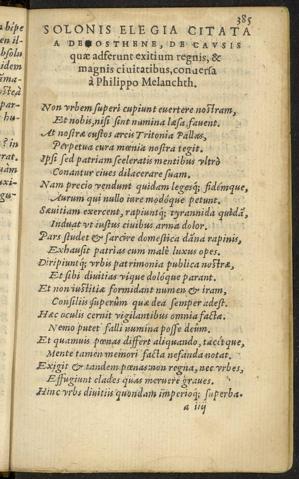 385
SOLONIS ELEGIA CITATA
A DEMOSTHENE, DE CAVSIS
quæ adferunt exitium regnis, &
magnis ciuitatibus, conuersa
à Philippo Melanchth.
Non vrbem superi cupiunt euertere nostram,
Et nobis, nisi sint numina læsa, fauent.
At nostræ custos arcis Tritonia Pallas,
Perpetua cura mœnia nostra tegit.
Ipsi sed patriam sceleratis mentibus vltrò
Conantur ciues dilacerare suam.
Nam precio vendunt quidam legesq́; fidémque,
Aurum qui nullo iure modóque petunt.
Sæuitiam exercent, rapiuntq́; tyrannida quidā,
Induat vt iustus ciuibus arma dolor.
Pars studet & sarcire domestica dāna rapinis,
Exhausit patrias cum malè luxus opes.
Diripiuntq́; vrbis patrimonia publica nostræ,
Et sibi diuitias vique dolóque parant.
Et non iustitiæ formidant numen & iram,
Consiliis superûm quæ dea semper adest.
Hæc oculis cernit vigilantibus omnia facta.
Nemo putet falli numina posse deûm.
Et quamuis pœnas differt aliquando, tacétque,
Mente tamen memori facta nefanda notat.
Exigit & tandem pœnas: non regna, nec vrbes,
Effugiunt clades quas meruere graues.
Hinc vrbs diuitiis quondam imperioq́; superba.
a iiij